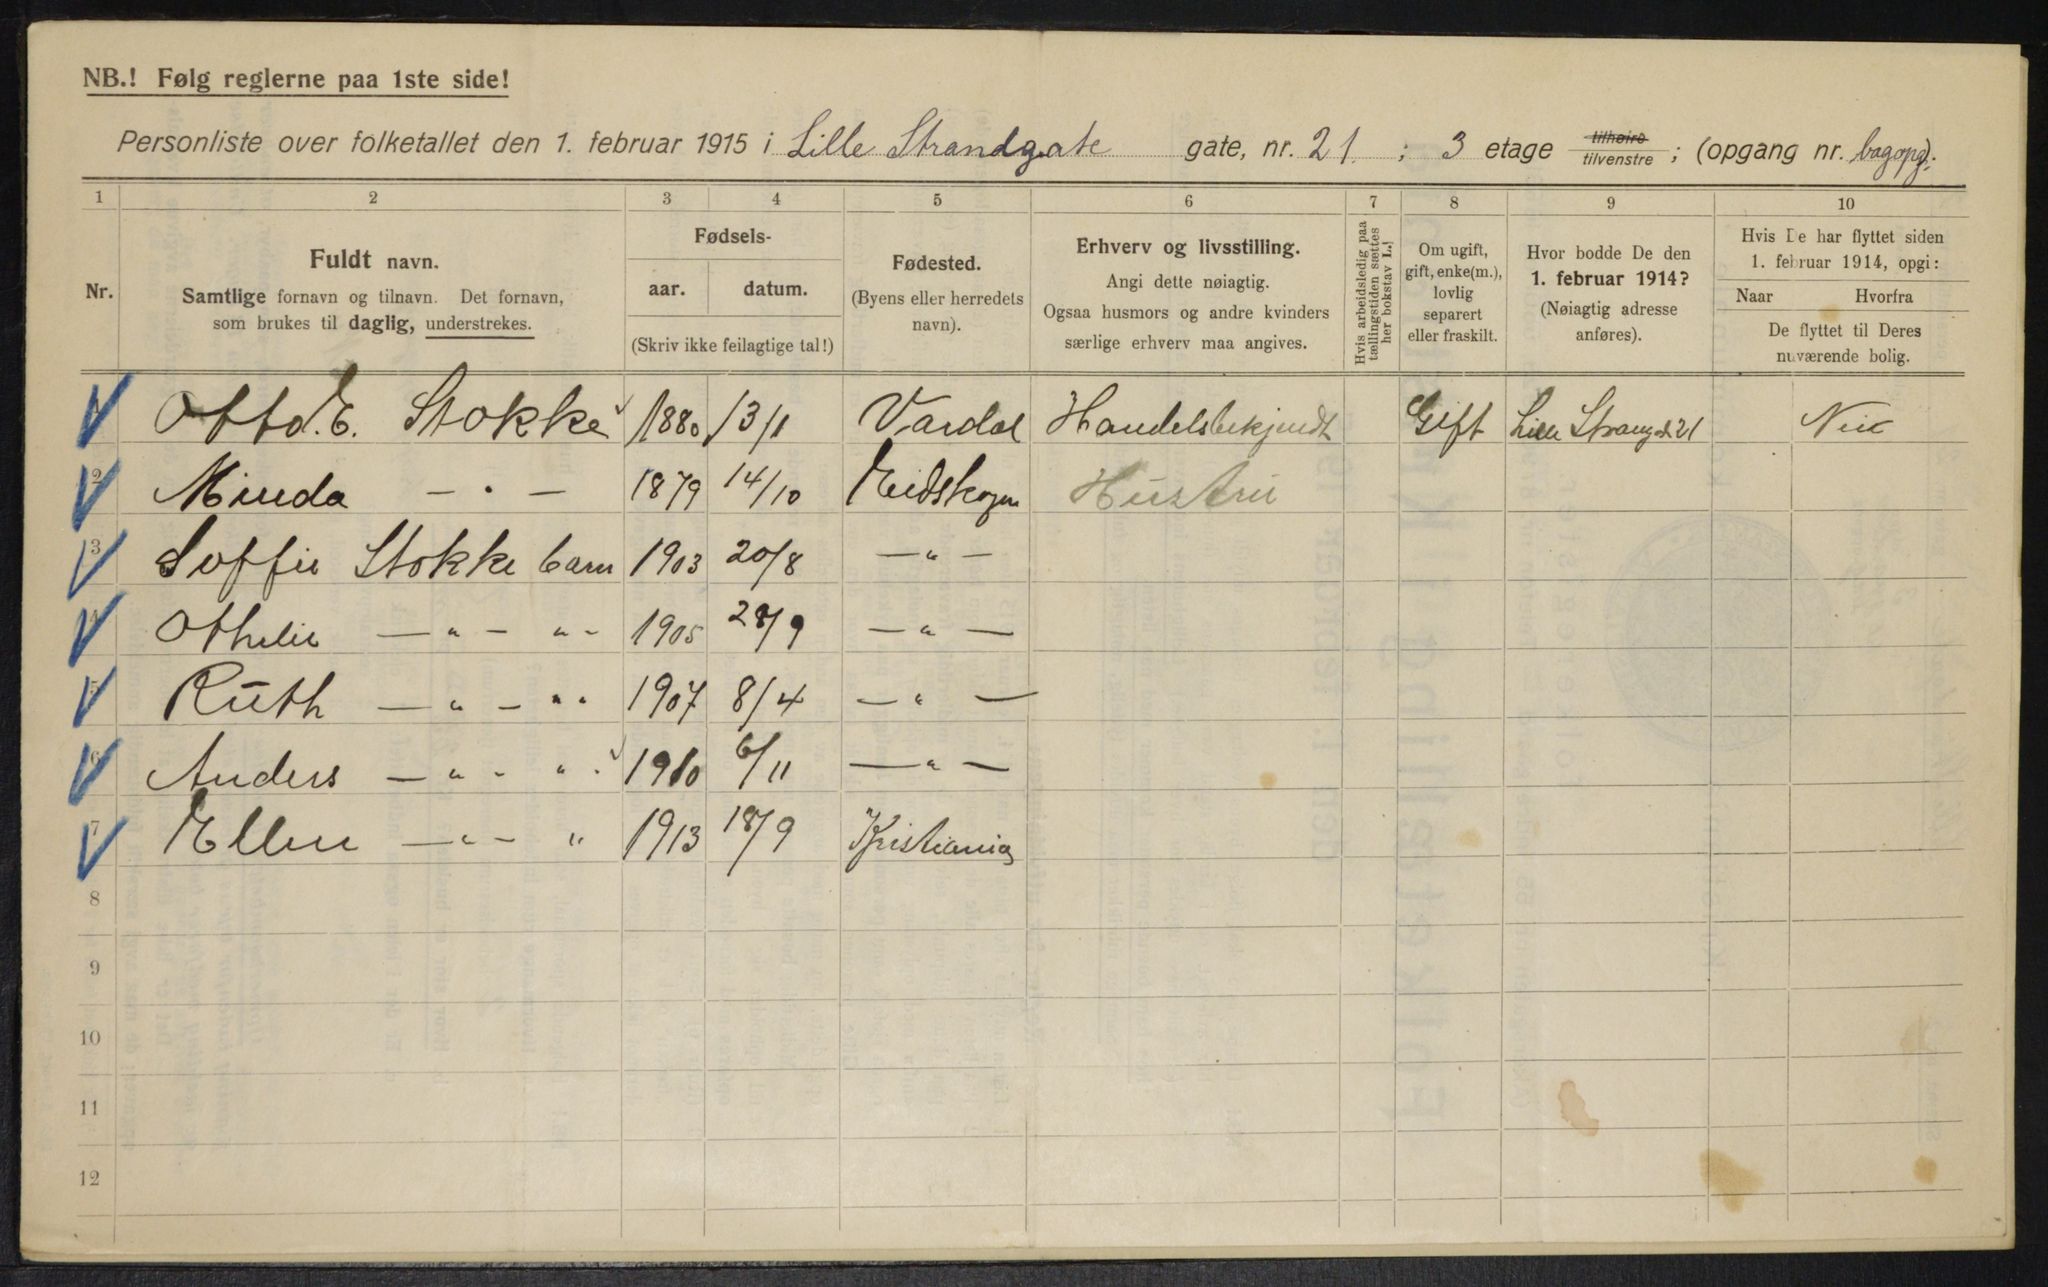 NB.! Følg reglerne paa 1ste side!
Personliste over folketallet den 1. februar 1915 i Lille Strandgate gate, nr. 21 ; 3 etage tilhøire tilvenstre ; (opgang nr. bagopg).
1 2 3 4 5 6 7 8 9 10
Nr.
Fuldt navn.
Samtlige fornavn og tilnavn. Det fornavn,
som brukes til daglig, understrekes.
Fødsels-
aar. datum.
(Skriv ikke feilagtige tal!)
Fødested.
(Byens eller herredets
navn).
Erhverv og livsstilling.
Angi dette nøiagtig.
Ogsaa husmors og andre kvinders
særlige erhverv maa angives.
Hvis arbeidsledig paa
tællingstiden sættes
her bokstav L.!
Om ugift,
gift, enke(m.),
lovlig
separert
eller fraskilt.
Hvor bodde De den
1. februar 1914?
(Nøiagtig adresse
anføres).
Hvis De har flyttet siden
1. februar 1914, opgi:
Naar Hvorfra
De flyttet til Deres
nuværende bolig.
1 Otto. E. Stokke 1880 13/1 Vardal Handelsbetjendt Gift Lille Strangt 21
2 Minda — " — 1879 14/10 Eidskogen Hustru
3 Soffie Stokke barn 1903 20/8 — " —
4 Othelie — " — " — 1905 28/9 — " —
5 Ruth — " — " " 1907 8/4 — " —
6 Anders — " — " 1910 6/11 — " —
7 Ellen — " — " 1913 18/9 Kristiania
8
9
10
11
12